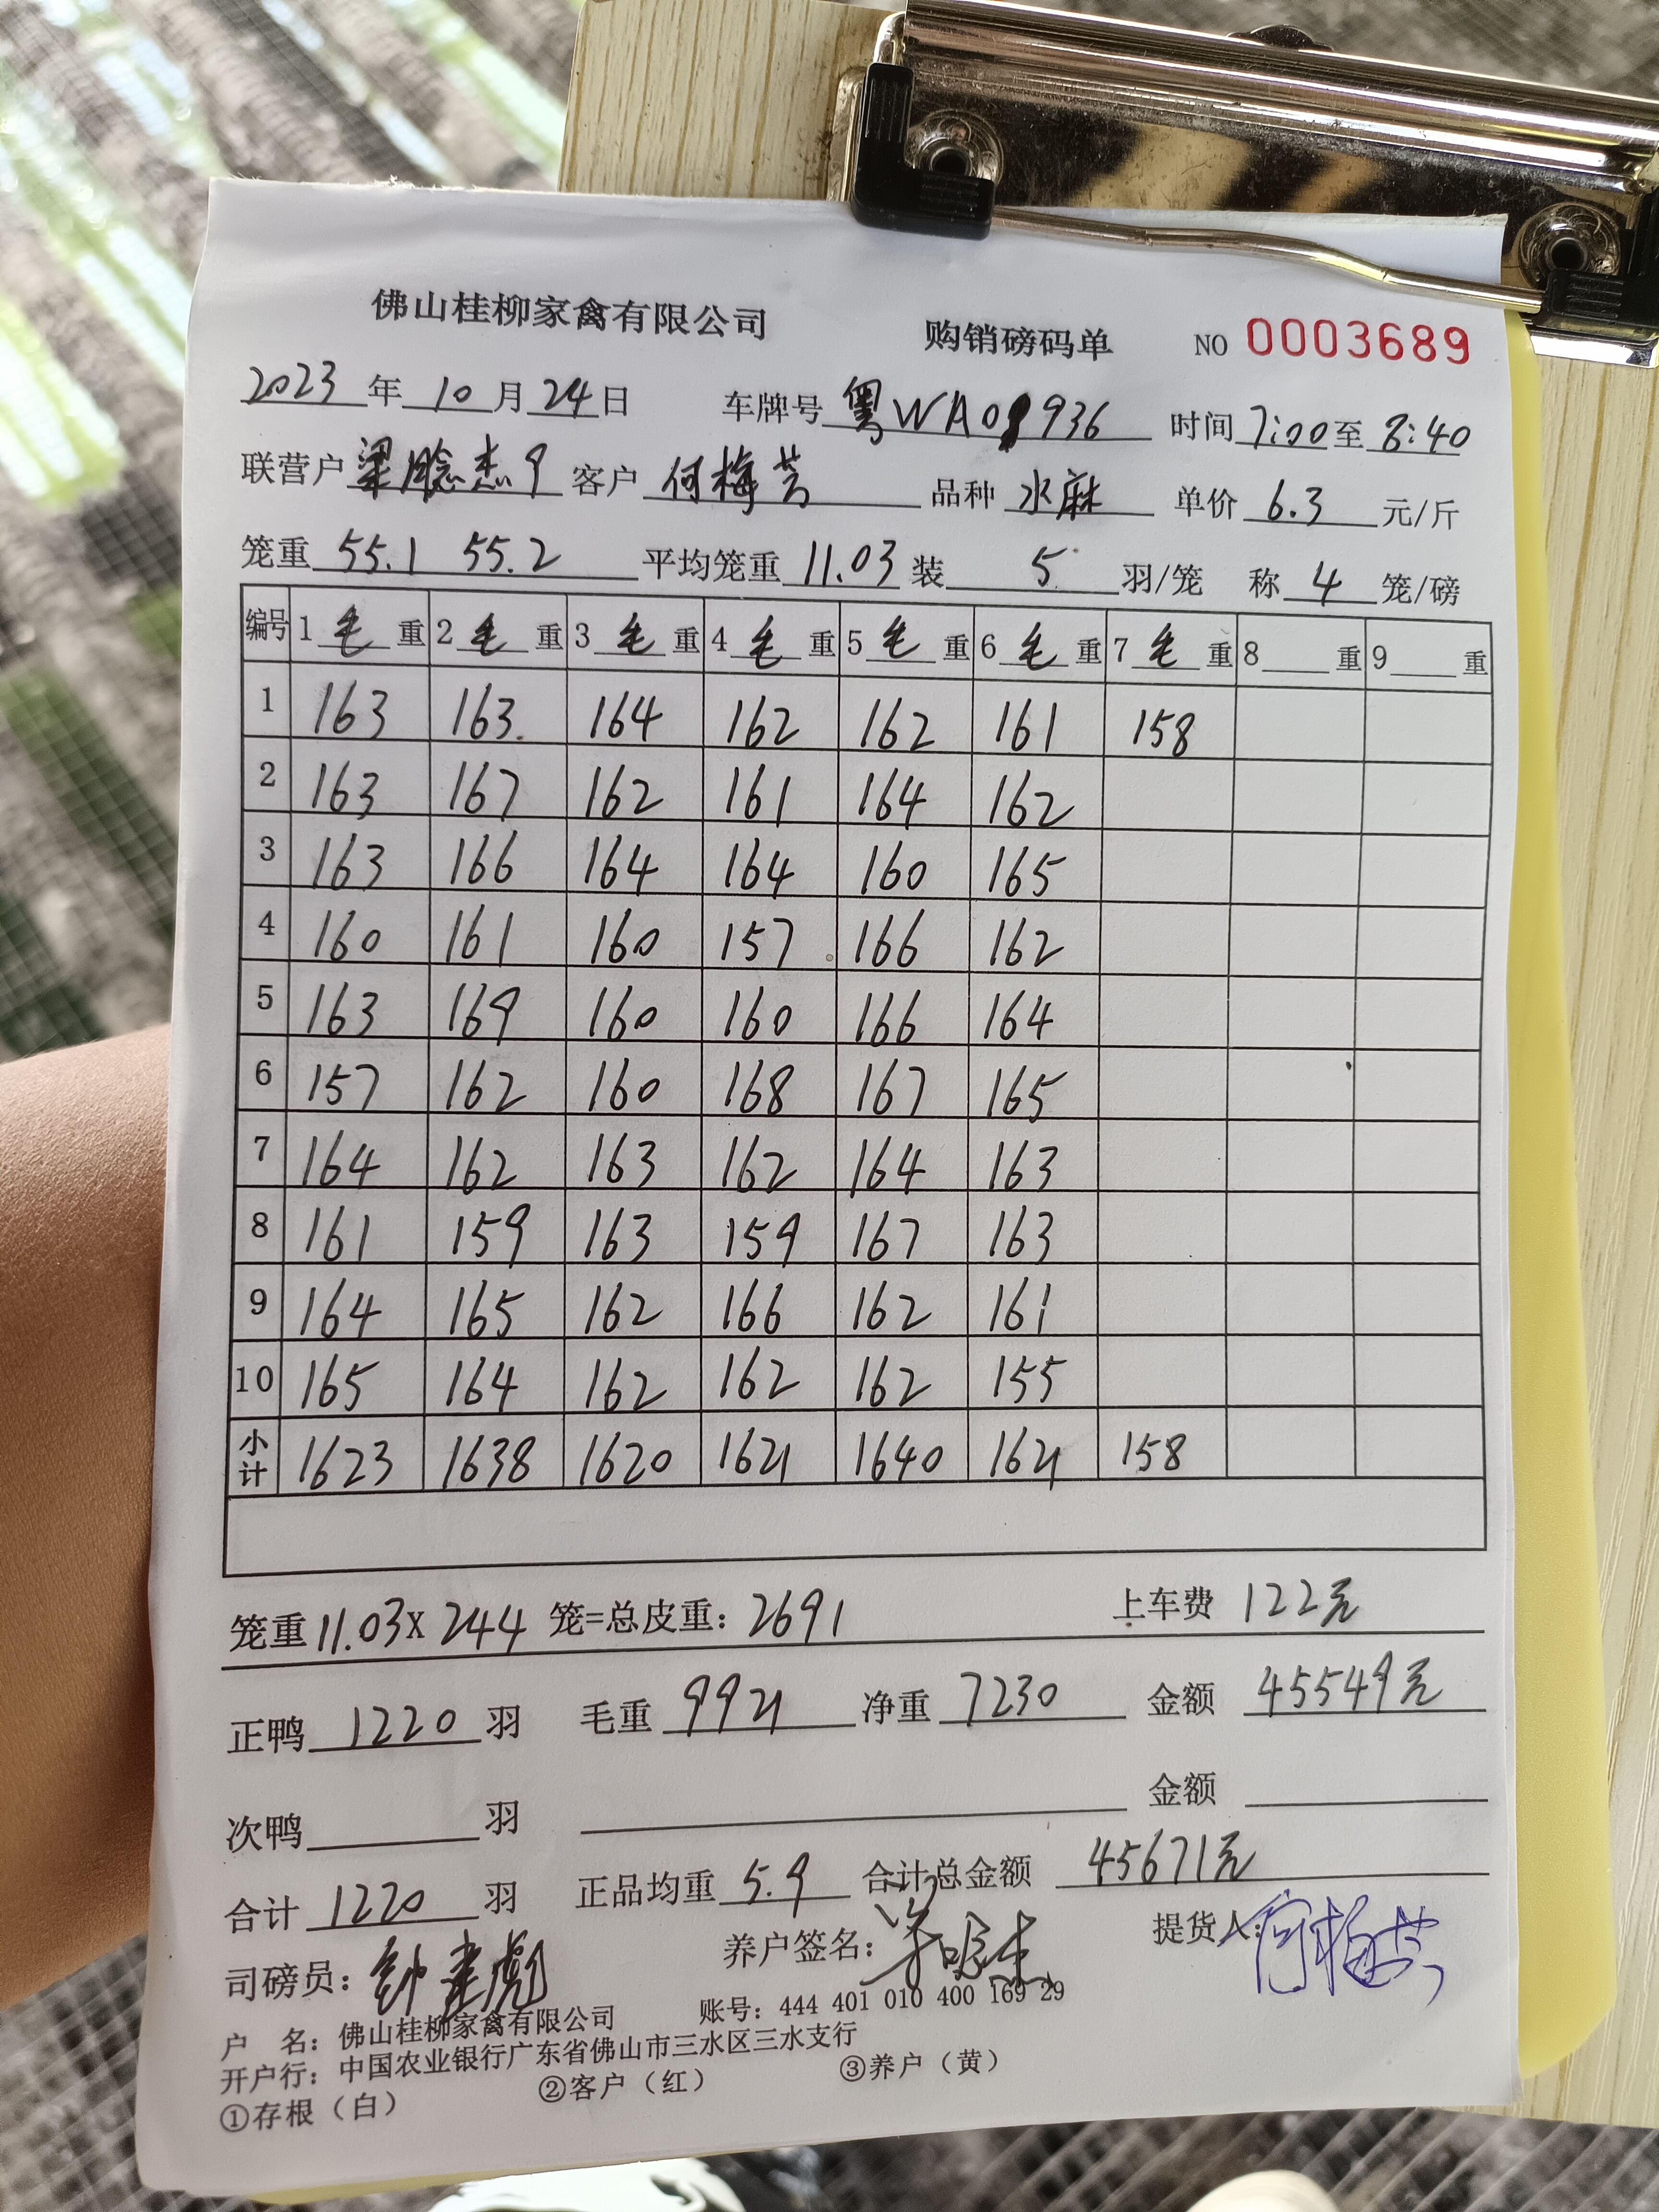 佛山桂柳家禽有限公司 购销磅码单 NO 0003689
2023年10月24日 车牌号 粤WA08936 时间 7:00至8:40
联营户 梁 杰9 客户 何梅芳 品种 水麻 单价 6.3 元/斤
笼重 55.1 55.2 平均笼重 11.03 装 5 羽/笼 称 4 笼/磅
编号 1毛重 2毛重 3毛重 4毛重 5毛重 6毛重 7毛重 8 重 9 重
1 163 163 164 162 162 161 158
2 163 167 162 161 164 162
3 163 166 164 164 160 165
4 160 161 160 157 166 162
5 163 169 160 160 166 164
6 157 162 160 168 167 165
7 164 162 163 162 164 163
8 161 159 163 159 167 163
9 164 165 162 166 162 161
10 165 164 162 162 162 155
小计 1623 1638 1620 1621 1640 1621 158
笼重11.03X 244 笼=总皮重：2691 上车费 122元
正鸭 1220 羽 毛重 9921 净重 7230 金额 45549元
次鸭 羽 金额
合计 1220 羽 正品均重 5.9 合计总金额 45671元
司磅员：钟建彪 养户签名： 提货人：何梅芳
户 名：佛山桂柳家禽有限公司 账号：444 401 010 400 169 29
开户行：中国农业银行广东省佛山市三水区三水支行
①存根（白） ②客户（红） ③养户（黄）